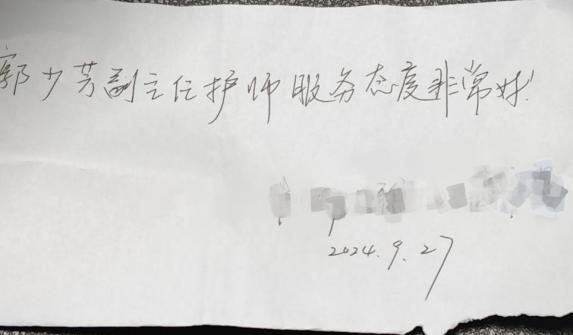 郭少芳副主任护师服务态度非常好
2024.9.27